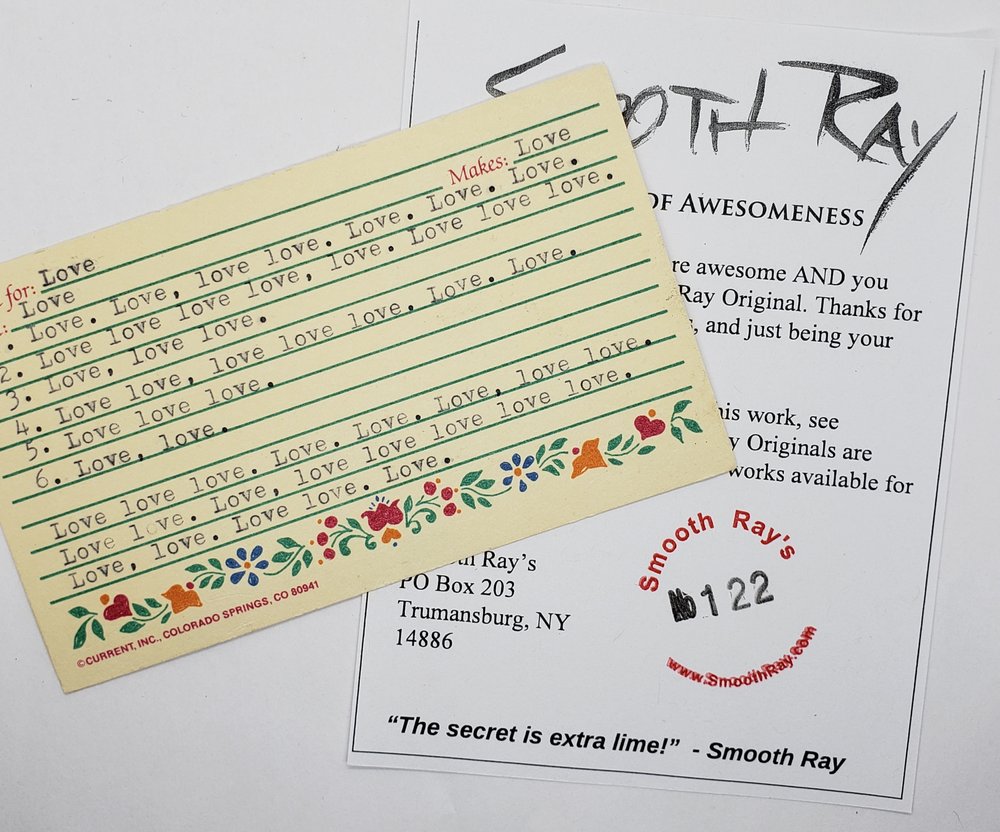 Makes: Love
for: Love
: Love
. Love. Love, love love. Love. Love. Love.
2. Love love love love, love. Love love love.
3. Love, love love.
4. Love love, love love love. Love. Love.
5. Love love love.
6. Love, love.
Love love love. Love. Love. Love, love love.
Love love. Love, love love love love love.
Love, love. Love love. Love.
©CURRENT, INC., COLORADO SPRINGS, CO 80941
Smooth Ray
OF AWESOMENESS
re awesome AND you
Ray Original. Thanks for
, and just being your
his work, see
y Originals are
works available for
th Ray's
PO Box 203
Trumansburg, NY
14886
Smooth Ray's
No 122
www.SmoothRay.com
“The secret is extra lime!” - Smooth Ray